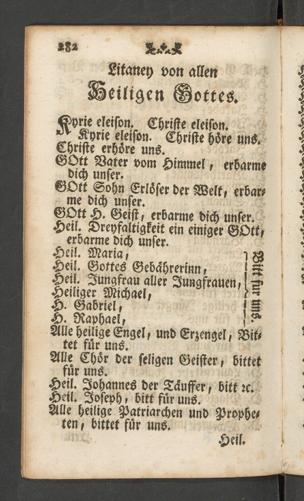 282
Litaney von allen
Heiligen Gottes.
Kyrie eleison. Christe eleison.
Kyrie eleison. Christe höre uns.
Christe erhöre uns.
GOtt Vater vom Himmel, erbarme
dich unser.
GOtt Sohn Erlöser der Welt, erbar-
me dich unser.
GOtt H. Geist, erbarme dich unser.
Heil. Dreyfaltigkeit ein einiger GOtt,
erbarme dich unser.
Heil. Maria,
Heil. Gottes Gebährerinn,
Heil. Jungfrau aller Jungfrauen,
Heiliger Michael,
H. Gabriel,
H. Raphael,
Bitt für uns.
Alle heilige Engel, und Erzengel, Bit-
tet für uns.
Alle Chör der seligen Geister, bittet
für uns.
Heil. Johannes der Täuffer, bitt ꝛc.
Heil. Joseph, bitt für uns.
Alle heilige Patriarchen und Prophe-
ten, bittet für uns.
Heil.